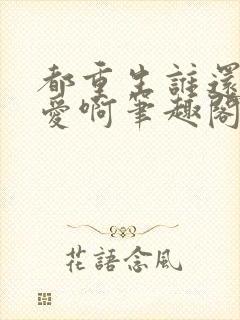 都重生誰還
愛啊筆趣閣
花語念風